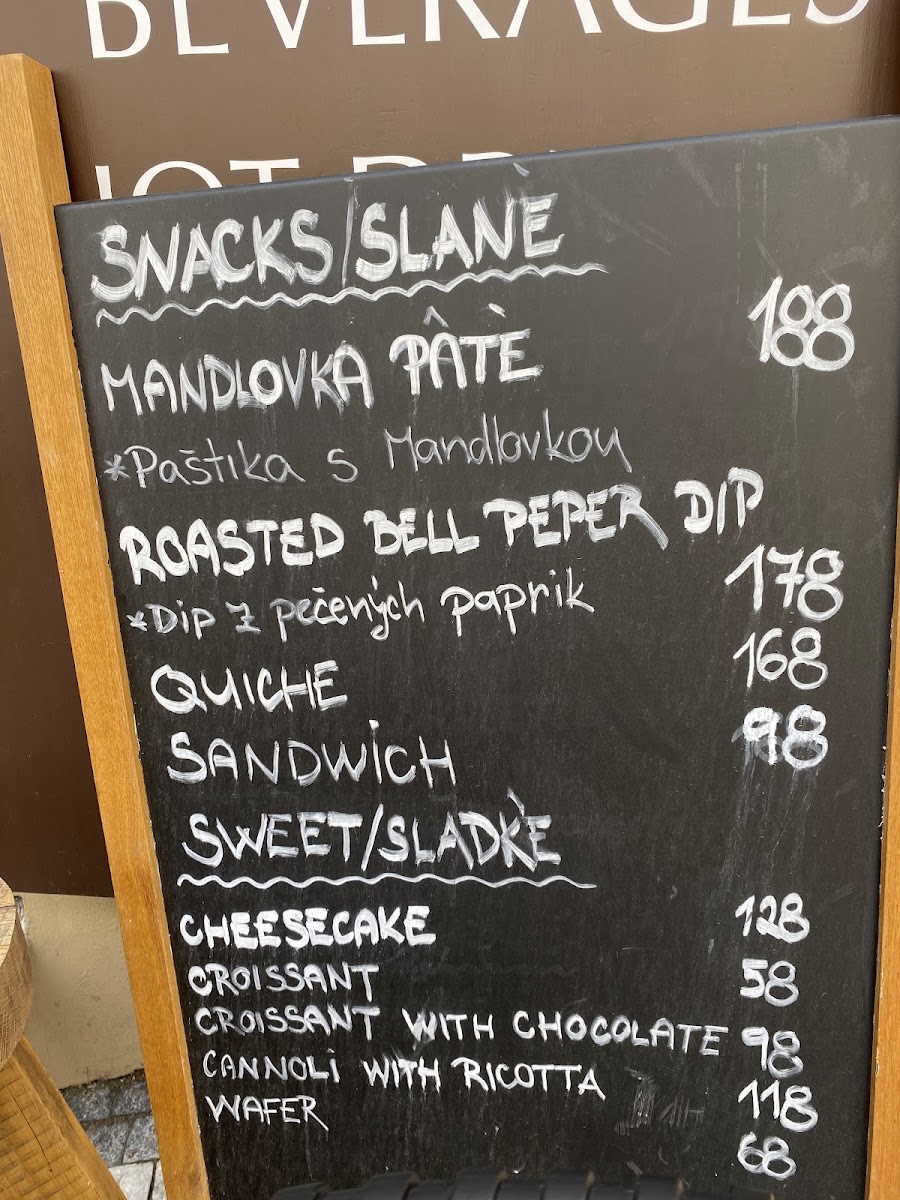 BEVERAGES
SNACKS/SLANÈ
MANDLOVKA PÂTÈ 188
*Paštika s Mandlovkou
ROASTED BELL PEPER DIP 178
*Dip z pečených paprik
QUICHE 168
SANDWICH 98
SWEET/SLADKÈ
CHEESECAKE 128
CROISSANT 58
CROISSANT WITH CHOCOLATE 98
CANNOLI WITH RICOTTA 118
WAFER 68